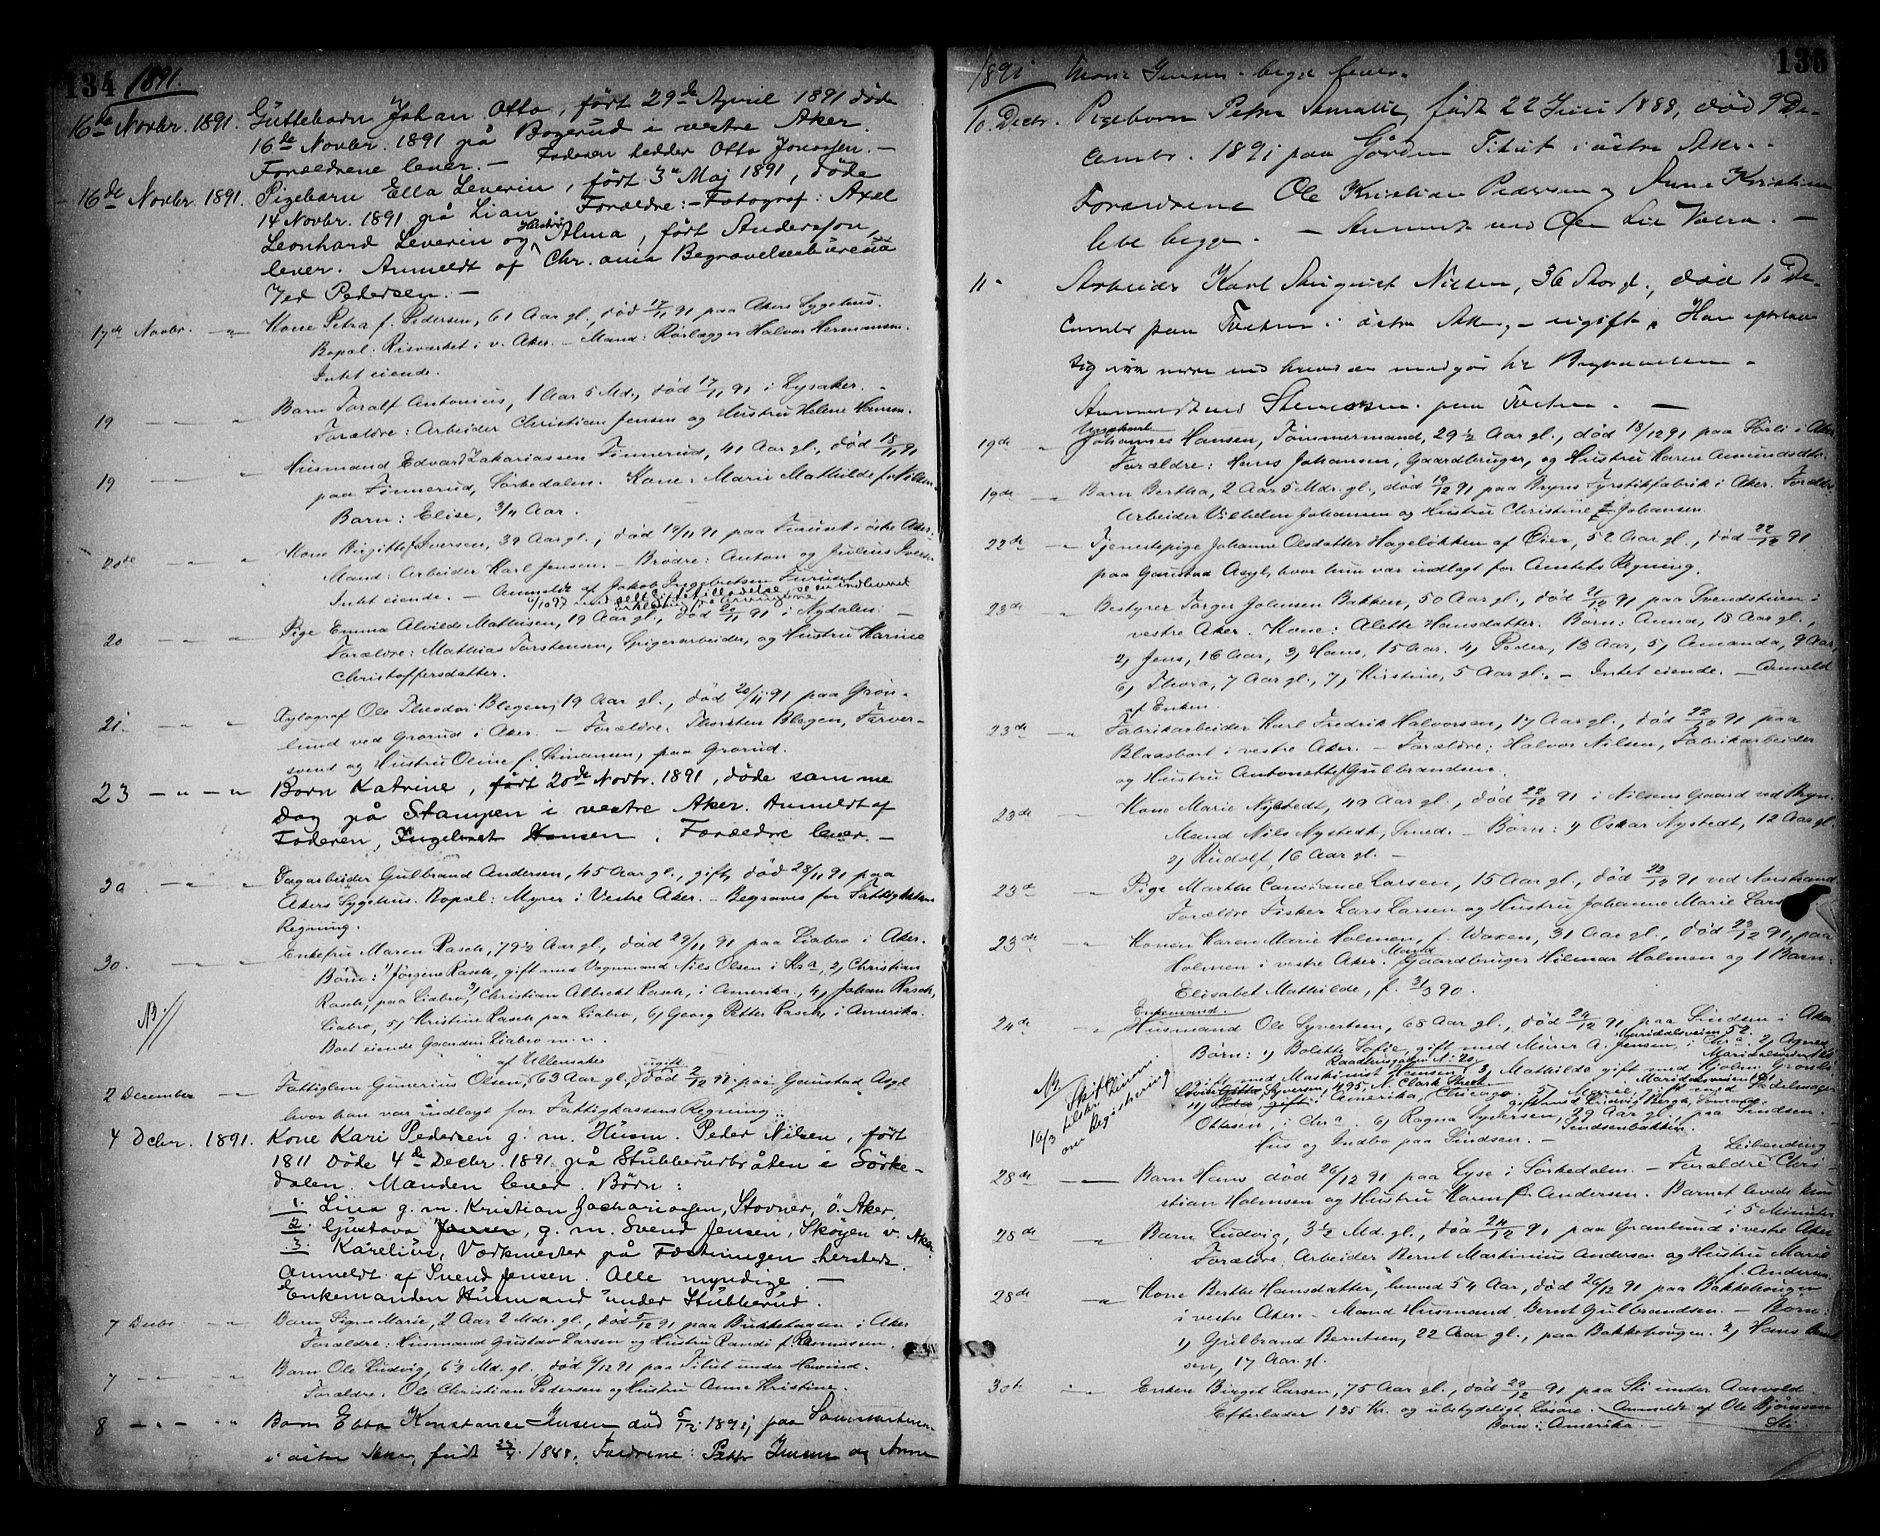 134 1891.
16de Novbr. 1891. Guttebarn Johan Otto, født 29de April 1891 døde
16de Novbr. 1891 på Bogerud i vestre Aker.
Forældrene lever. — Faderen hedder Otto Jonassen. —
16de Novbr. 1891. Pigebarn Ella Leverin, født 3de Maj 1891, døde
14 Novbr. 1891 på Lian. Forældre: — Fotograf: Axel
Leonhard Leverin og Hustru Alma, født Andersson,
lever. Anmeldt af Chr.ania Begravelsesbureau
ved Pedersen. —
17de Novbr. — " Kone Petra f. Pedersen, 61 Aar gl., død 17/11 91 paa Akers Sygehus.
Bopæl: Risværket i v. Aker. — Mand: Rørlægger Halvor Hermansen.
Intet eiende.
19 — " — " Barn Toralf Antonius, 1 Aar 5 Md., død 17/11 91 i Lysaker. —
Forældre: Arbeider Christian Jensen og Hustru Helene Hansen.
19 — " — " Husmand Edvard Zakariassen Finnerud, 41 Aar gl., død 18/11 91
paa Finnerud, Sørkedalen. Kone: Marie Mathilde f. Nilsen.
Barn: Elise, 3/4 Aar.
20de — " — " Kone Birgitte f. Iversen, 39 Aar gl., død 19/11 91 paa Furuset i østre Aker.
Mand: Arbeider Karl Jensen. — Brødre: Anton og Julius Iversen
Intet eiende. — Anmeldt af Jakob Ingebretsen Furuset
20 — " — " Pige Emma Alvilde Mathisen, 19 Aar gl., død 20/11 91 i Nydalen. —
Forældre: Mathias Torstensen, Spigerarbeider, og Hustru Karine
Christoffersdatter.
21 — " — " Xylograf Ole Theodor Blegen, 19 Aar gl., død 20/11 91 paa Grøn-
lund ved Grorud i Aker. — Forældre: Thorsten Blegen, Farver-
svend og Hustru Oline f. Simensen, paa Grorud.
23 — " — " Barn Katrine, født 20de Novbr. 1891, døde samme
Dag på Stampen i vestre Aker. Anmeldt af
Faderen, Ingebret Hansen. Forældre lever. —
30 — " — " Dagarbeider Gulbrand Andersen, 45 Aar gl., gift, død 28/11 91 paa
Akers Sygehus. Bopæl: Myrer i Vestre Aker. — Begraves for Fattigkassens
Regning.
30. — " — " Enkefru Maren Rasch, 79½ Aar gl., død 29/11 91 paa Liabro i Aker.
Børn: 1) Jørgine Rasch, gift med Vognmand Nils Olsen i Kra, 2) Christian
Rasch, paa Liabro, 3) Christian Albrekt Rasch, i Amerika, 4) Johan Rasch,
Liabro, 5) Kristine Rasch paa Liabro, 6) Georg Petter Rasch, i Amerika.
NB Boet eiende Gaarden Liabro m. m.
af Ullensaker ugift
2 December — " Fattiglem Gunerius Olsen, 63 Aar gl., død 2/12 91 paa Gaustad Asyl
hvor han var indlagt for Fattigkassens Regning.
4 Decbr. 1891. Kone Kari Pedersen g. m. Husm. Peder Nilsen, født
1811 Døde 4de Decbr. 1891 på Stubberudbråten i Sørke-
dalen. Manden lever. Børn:
1. Lina g. m. Kristian Zachariasen, Stovner, ö. Aker,
2. Gustava Jensen, g. m. Svend Jensen, Skøyen v. Aker.
3. Karelius, Værkmester på Fæstningen hersteds.
Anmeldt af Svend Jensen. Alle myndige. —
Enkemanden Husmand under Stubberud.
7 Decbr. — " Barn Signe Marie, 2 Aar 2 Mdr. gl., død 5/12 91 paa Bukkehaugen i Aker
Forældre: Husmand Gustav Larsen og Hustru Randi f. Rasmussen.
7 — " — " Barn Ole Ludvig, 6½ Md. gl., død 6/12 91 paa Tilut under Hovind.
Forældre: Ole Christian Pedersen og Hustru Anne Kristine.
8 — " — " Barn Ebba Konstance Jensen død 5/12 1891, paa
i østre Aker, født 1888, Forældrene: Petter Jensen og Anne
1891 Marie Jensen — begge lever. 135
10. Decbr. Pigebarn Petra Amalie, født 22 Juni 1888, død 9 De-
cember. 1891 paa Gården Tilut i østre Aker. —
Forældrene Ole Kristian Pedersen og Anne Kristine
lever begge. — Anmeldt ved
11 " Arbeider Karl August Nilsen, 36 Aar gl., død 10 De-
cember paa Tveten i østre Aker, — ugift. Han efterlader
sig ikke mere end hvad der medgår til Begravelsen. —
Anmeldt ved Stenersen paa Tveten. —
Ungkarl
19de " Johannes Hansen, Tømmermand, 29½ Aar gl., død 18/12 91 paa Sørli i Aker
Forældre: Hans Johansen, Gaardbruger, og Hustru Karen Amundsdtr.
19de — " Barn Bertha, 2 Aar 5 Mdr. gl., død 19/12 91 paa Bryns Fyrstikfabrik i Aker. Forældre
Arbeider Vilhelm Johansen og Hustru Christine f. Johansen.
22de — " Tjenestepige Johanne Olsdatter Hageløkken af Øier, 52 Aar gl., død 22/12 91
paa Gaustad Asyl, hvor hun var indlagt for Amtets Regning.
23de — " Bestyrer Torger Johnsen Bakken, 50 Aar gl., død 21/12 91 paa Svendstuen i
vestre Aker. Kone: Alette Hansdatter. Børn: Anna, 18 Aar gl.,
2) Jens, 16 Aar, 3) Hans, 15 Aar. 4) Peder, 13 Aar, 5) Amanda, 9 Aar,
6) Thora, 7 Aar gl., 7) Kirstine, 5 Aar gl., — Intet eiende. — Anmeld
af Enken.
23de — " Fabrikarbeider Karl Fredrik Halvorsen, 17 Aar gl., død 22/12 91 paa
Blaasbort i vestre Aker. — Forældre: Halvor Nilsen, Fabrikarbeider
og Hustru Antonette f. Gulbrandsen.
23de — " Kone Marie Nystedt, 49 Aar gl., død 22/12 91 i Nilsens Gaard ved Bryn.
Mand Nils Nystedt, Smed. — Børn: 1) Oskar Nystedt, 12 Aar gl.
2) Rudolf, 16 Aar gl. —
23de — " Pige Marthe Constance Larsen, 15 Aar gl., død 22/12 91 ved Norstrand.
Forældre Fisker Lars Larsen og Hustru Johanne Marie Lars
23de — " Konen Karen Marie Holmen, f. Waxen, 31 Aar gl., død 23/12 91, paa
Holmen i vestre Aker. Mand Gaardbruger Hilmar Holmen og 1 Barn:
Elisabet Mathilde, f. 31/3 90.
Enkemand.
24de — " Husmand Ole Syvertsen, 68 Aar gl., død 24/12 91 paa Sindsen i Aker
Børn: 1) Bolette Sofie, gift med Murer A. Jensen, i Chra. Maridalsveien 52. 2) Agnes
gift med Maskinist Hansen, Raadhusgaden No 20, 3) Mathilde gift med
4) Syversen, 495, N. Clark Street Amerika, Chicago. 5) Marie, gift med
Ottesen, i Chra. 6) Ragna Syversen, 29 Aar gl., paa Sindsen.
Hus og Indbo paa Sindsen. — Sindsenbakken.
NB Skifte
16/3 om Registrering
28de — " Barn Hans død 26/12 91 paa Lyse i Sørkedalen. — Forældre Leilending Chri-
stian Holmsen og Hustru Karen f. Andersen. Barnet levede kun
i 5 Minuter
28de — " Barn Ludvig, 3½ Md. gl., død 24/12 91 paa Granlund i vestre Aker
Forældre: Arbeider Bernt Martinius Andersen og Hustru Marie
f. Andersen.
28de — " Kone Berthe Hansdatter, henved 54 Aar, død 26/12 91 paa Bakkehaugen
i vestre Aker. — Mand Husmand Bernt Gulbrandsen. — Børn:
1) Gulbrand Berntsen, 22 Aar gl., paa Bakkehaugen. 2) Hans Bernt
sen, 17 Aar gl.
30te " Enken Birget Larsen, 75 Aar gl., død 29/12 91 paa Sti under Aarvold
Efterlader 135 Kr. og ubetydeligt Løsøre. — Anmeldt af Ole Bjørnsen
Børn i Amerika. — Sti